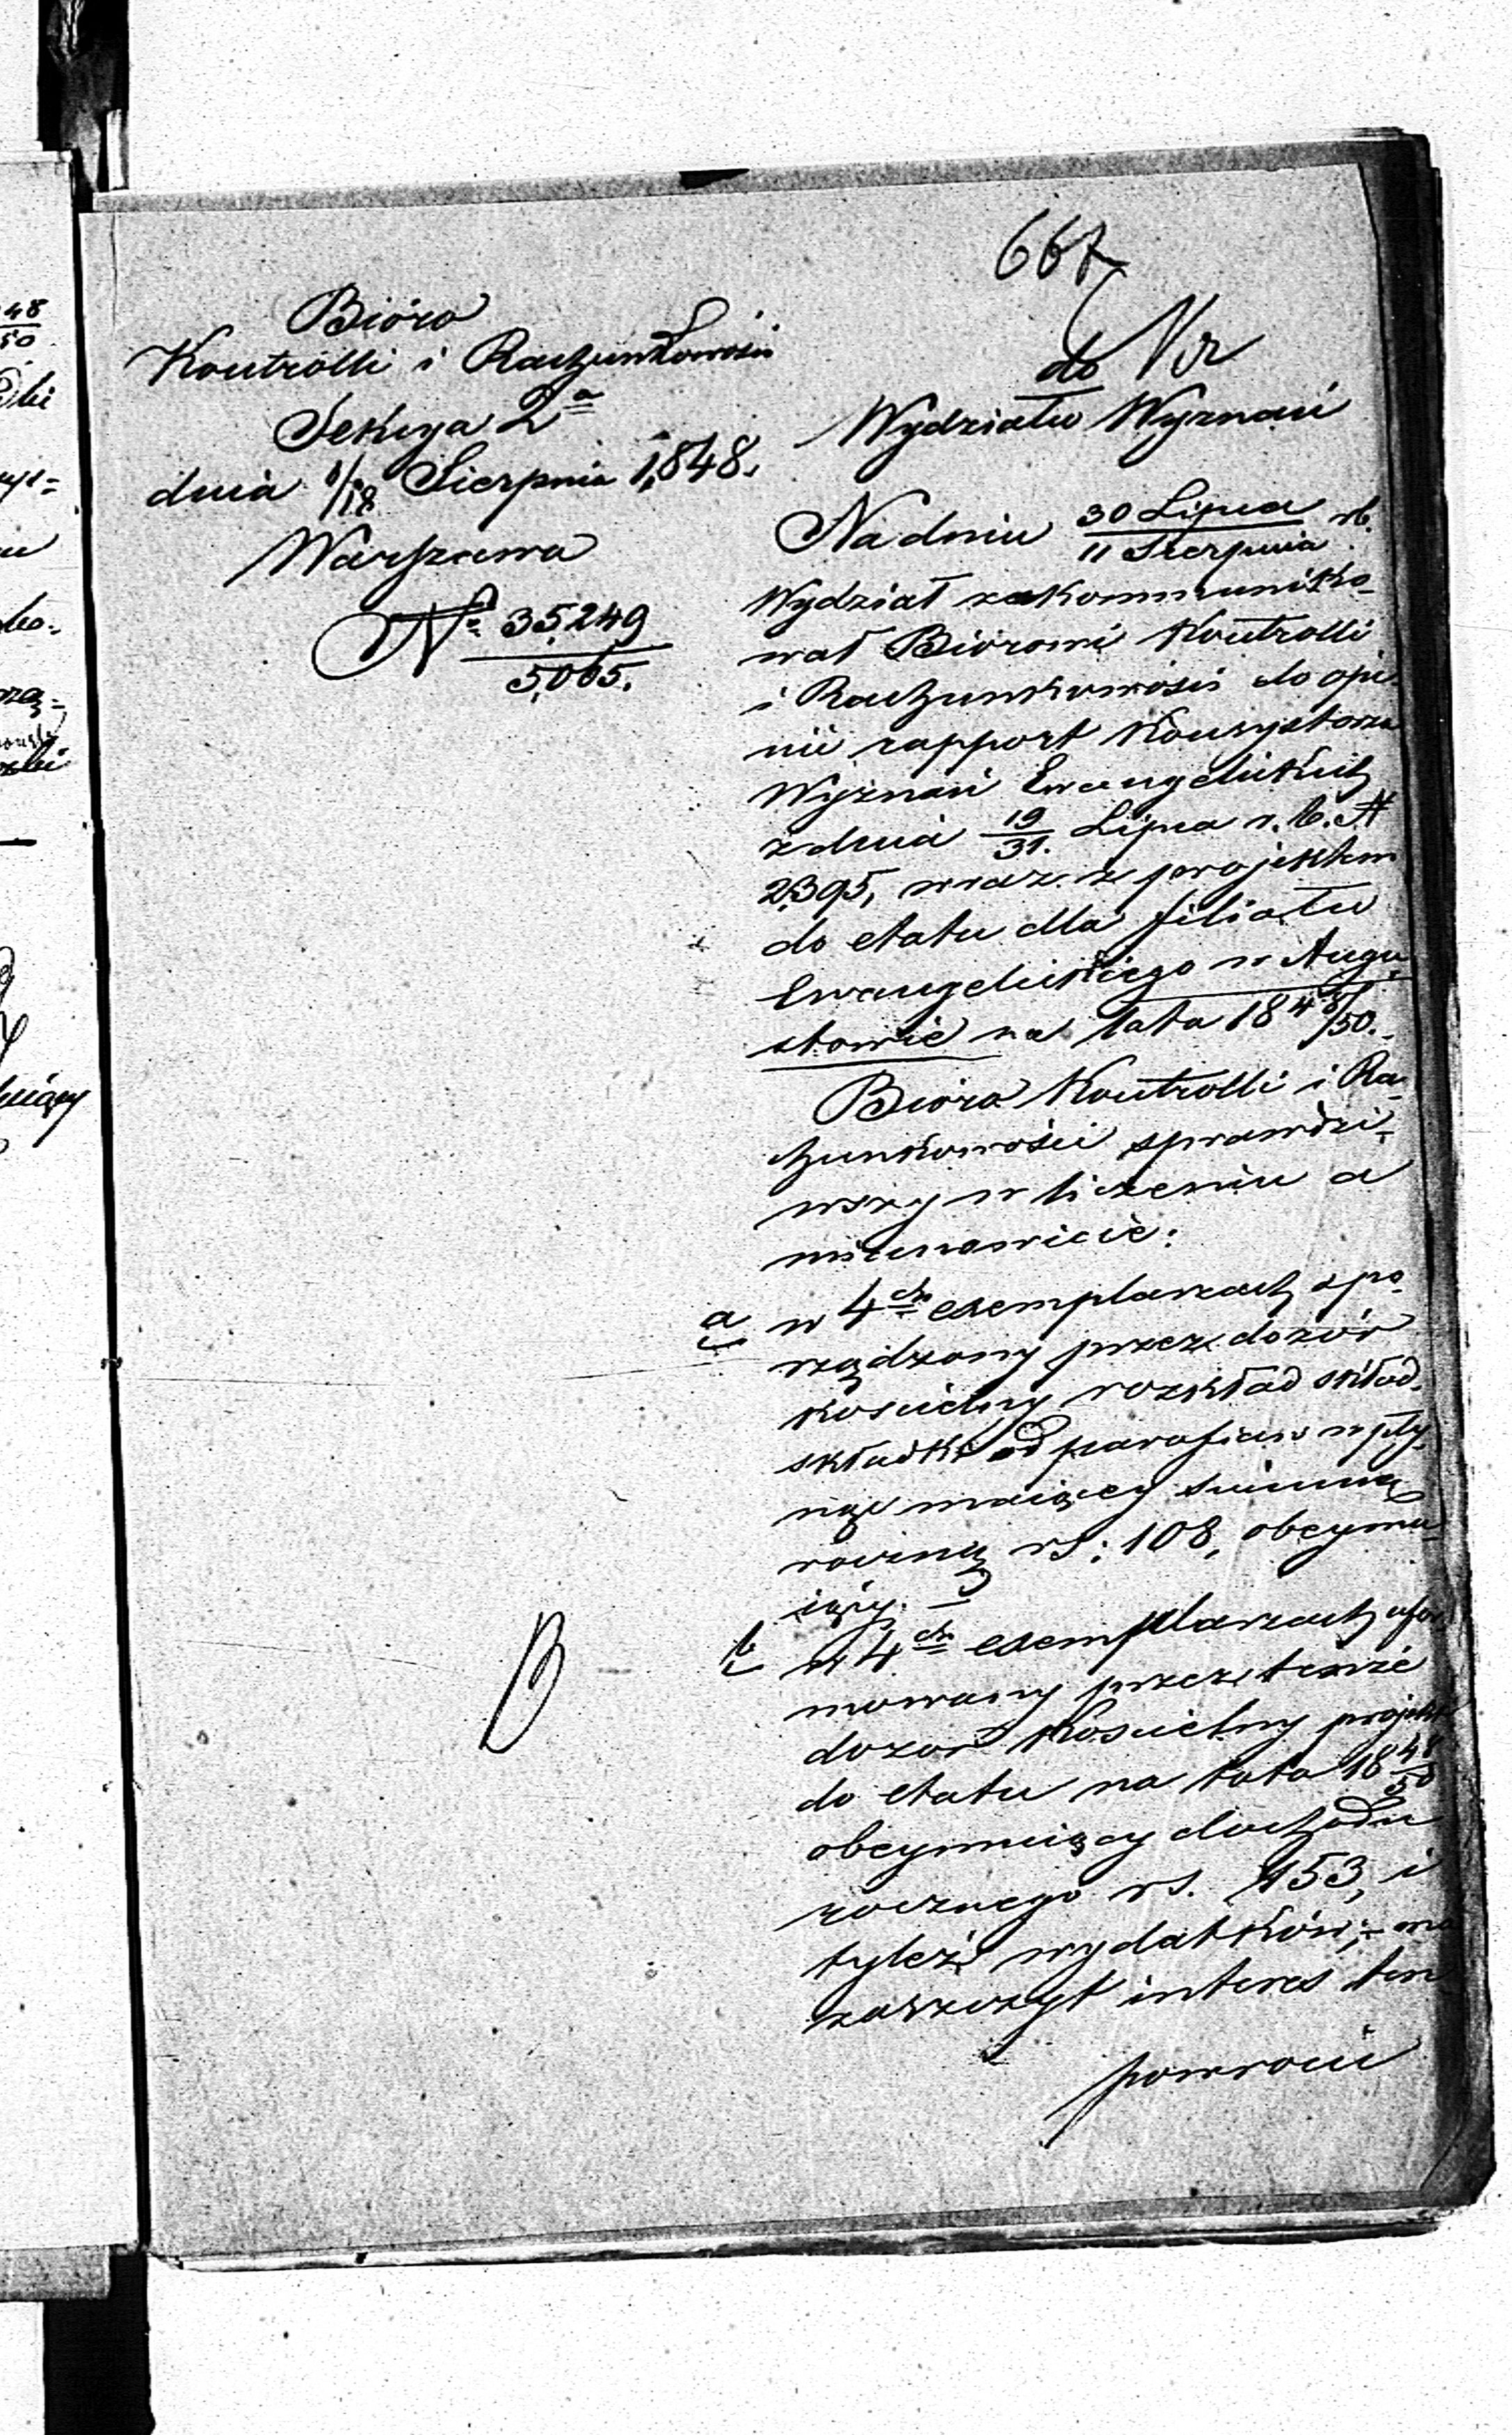 Bióro
Kontrolli i Rachunkowości
Sekcya 2a
dnia /18 Sierpnia 1848.
Warszawa
No 35,249
5,065.
667
do
Wydziału Wyznań
Na dniu 30 Lipca / 11 Sierpnia rb.
Wydział zakommuniko-
wał Biórowi Kontrolli
i Rachunkowości do opi-
nii rapport Konsystorza
Wyznań Ewangelickich
z dnia 19/31. Lipca r. b. N
2,395, wraz z projektem
do etatu dla filiału
Ewangelickiego w Augu-
stowie na lata 1848/50.
Bióro Kontrolli i Ra-
chunkowości sprawdzi-
wszy w liczeniu a
mianowicie:
a w 4ch exemplarzach spo-
rządzony przez dozór
kościelny rozkład skład.
składki od parafian wpły-
nąć maiącey summę
roczną rs: 108, obeyma-
iący.
b w 4ch exemplarzach ufor-
mowany przez tenże
dozór Kościelny projekt
do etatu na lata 1848/50
obeymuiący dochodu
rocznego rs. 153, i
tyleż wydatków; ma
zaszczyt interes ten
powrócić
B